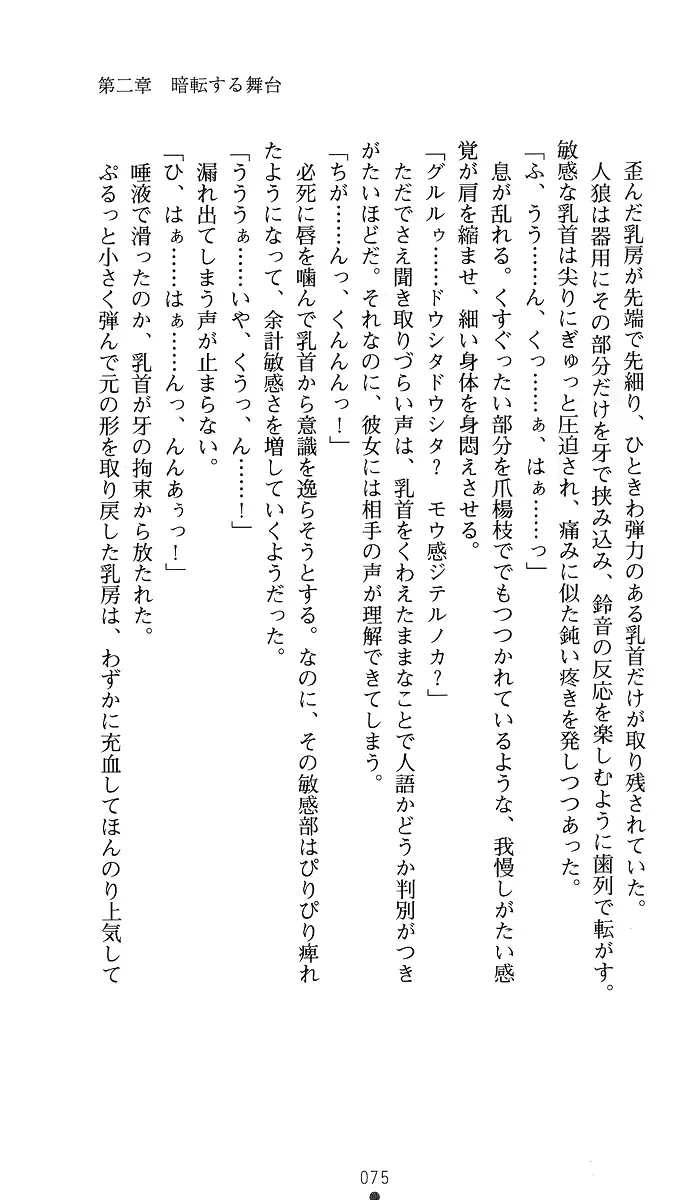 第二章　暗転する舞台
歪んだ乳房が先端で先細り、ひときわ弾力のある乳首だけが取り残されていた。
人狼は器用にその部分だけを牙で挟み込み、鈴音の反応を楽しむように歯列で転がす。
敏感な乳首は尖りにぎゅっと圧迫され、痛みに似た鈍い疼きを発しつつあった。
「ふ、うう……ん、くっ……ぁ、はぁ……っ」
息が乱れる。くすぐったい部分を爪楊枝ででもつつかれているような、我慢しがたい感
覚が肩を縮ませ、細い身体を身悶えさせる。
「グルルゥ……ドウシタドウシタ？　モウ感ジテルノカ？」
ただでさえ聞き取りづらい声は、乳首をくわえたままなことで人語かどうか判別がつき
がたいほどだ。それなのに、彼女には相手の声が理解できてしまう。
「ちが……んっ、くんんんっ！」
必死に唇を噛んで乳首から意識を逸らそうとする。なのに、その敏感部はぴりぴり痺れ
たようになって、余計敏感さを増していくようだった。
「うううぁ……いや、くうっ、ん……！」
漏れ出てしまう声が止まらない。
「ひ、はぁ……はぁ……んっ、んんあぅっ！」
唾液で滑ったのか、乳首が牙の拘束から放たれた。
ぷるっと小さく弾んで元の形を取り戻した乳房は、わずかに充血してほんのり上気して
075